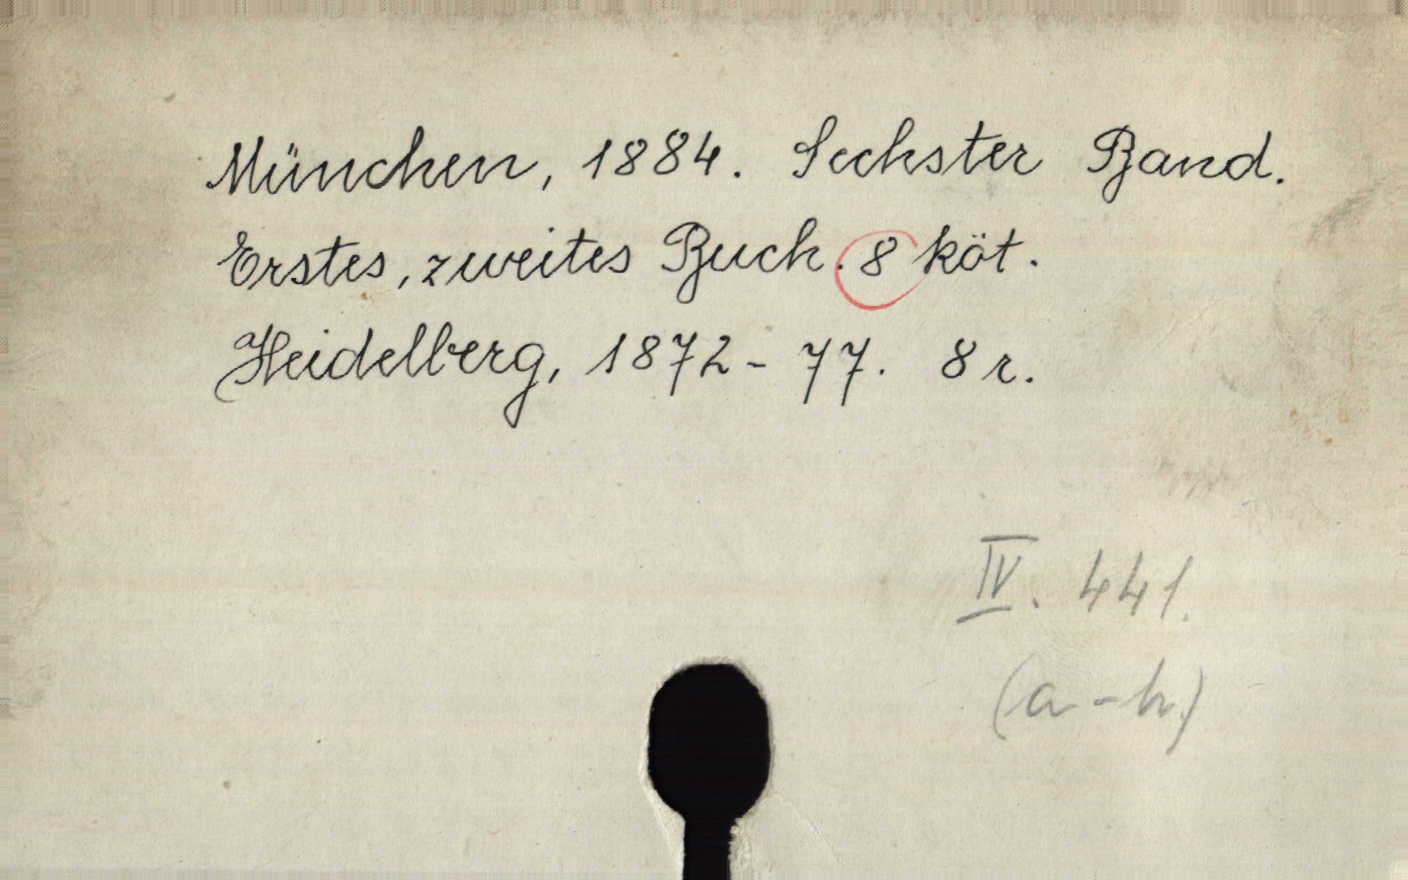 München, 1884. Sechster Band.
Erstes, zweites Buch. 8 köt.
Heidelberg, 1872-77. 8 r.
IV. 441.
(a-h)